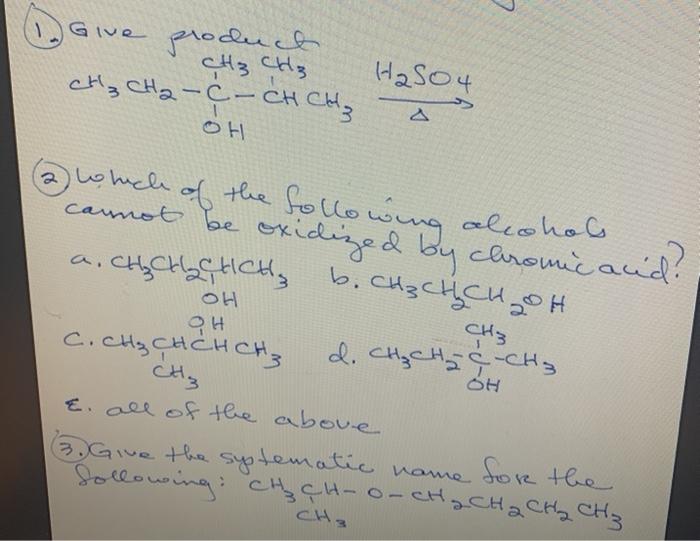 1. Give product
CH3 CH3
CH3CH2-C-CHCH3 H2SO4
OH Δ
2 Which of the following alcohols
cannot be oxidized by chromic acid?
a. CH3CH2CHCH3 b. CH3CH2CH2OH
OH
OH CH3
c. CH3CHCHCH3 d. CH3CH2-C-CH3
CH3 OH
E. all of the above
3. Give the systematic name for the
following: CH3CH-O-CH2CH2CH2CH3
CH3